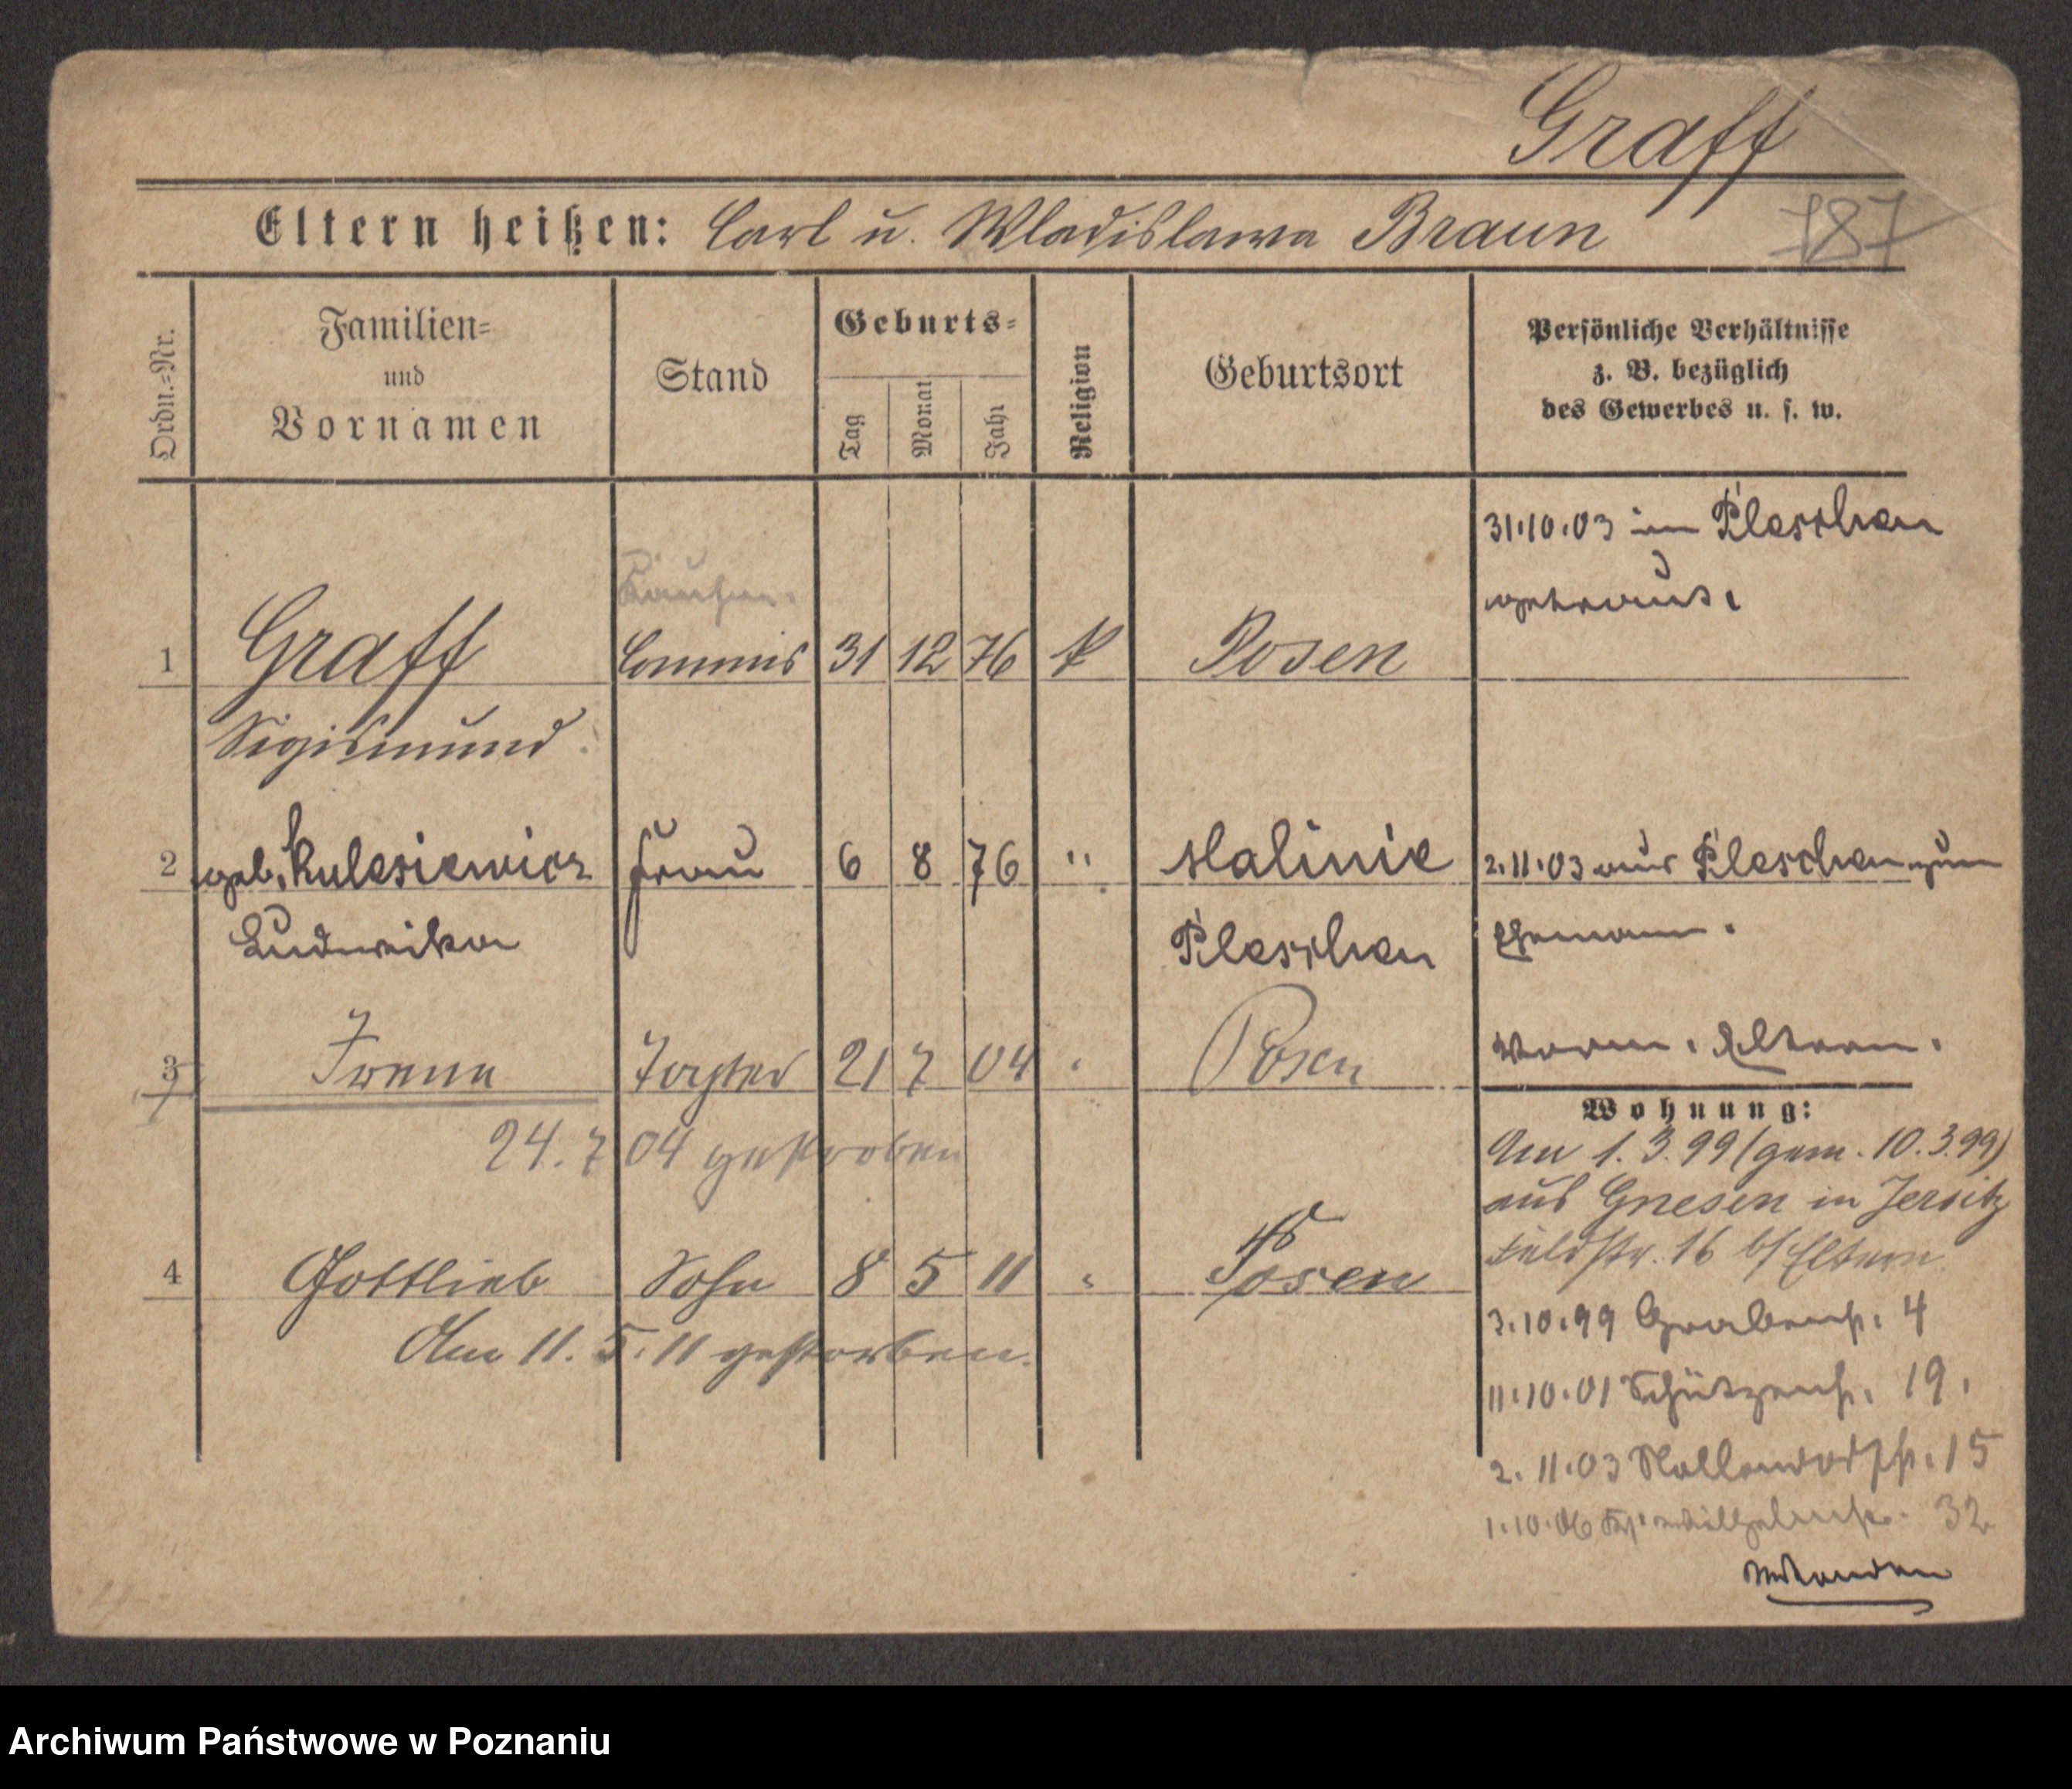 Graff
Eltern heißen: Carl u. Wladislawa Braun
187
Ordn.=Nr.
Familien=
und
Vornamen
Stand
Geburts=
Tag
Monat
Jahr
Religion
Geburtsort
Persönliche Verhältnisse
z. B. bezüglich
des Gewerbes u. s. w.
31.10.03 in Pleschen
getraut.
Kaufm.
1 Graff Commis 31 12 76 k Posen
Sigismund
2 geb. Kulesiewicz Frau 6 8 76 " Malinie 2.11.03 aus Pleschen zum
Ludwika Pleschen Ehemann.
3 Irene Tochter 21 7 04 " Posen Eltern.
24.7 04 gestorben
Wohnung:
Am 1.3.99 (gem. 10.3.99)
aus Gnesen in Jersitz
Feldstr. 16 b/ Eltern
4 Gottlieb Sohn 8 5 11 " Posen
Am 11.5.11 gestorben.
3.10.99 Grabenstr. 4
11.10.01 Schützenstr. 19.
2.11.03 Nollendorfstr. 15
1.10.06 32